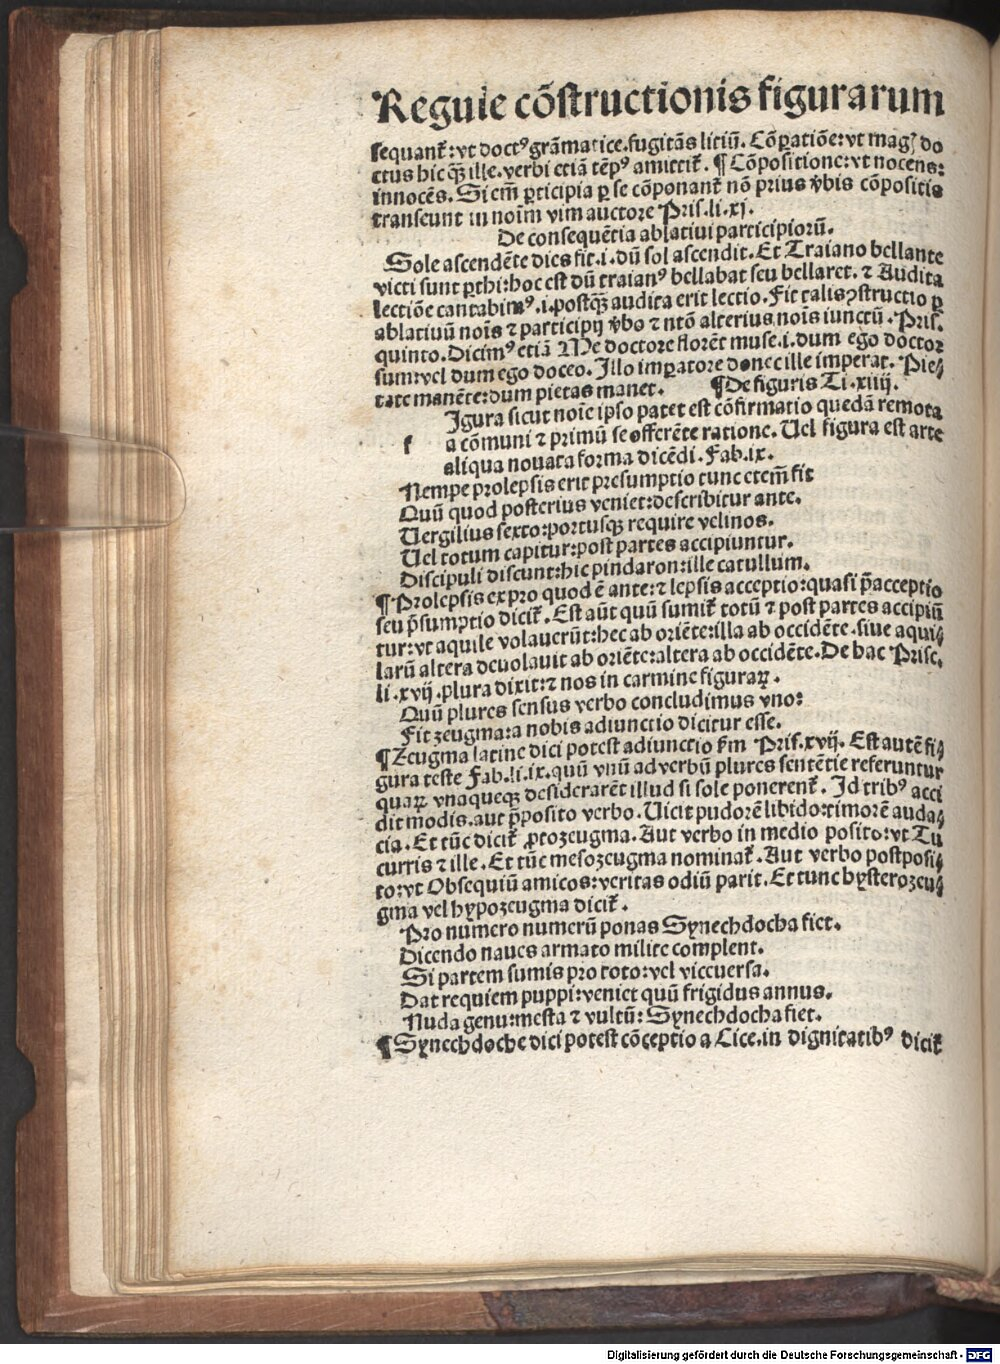 Regule cõstructionis figurarum
sequant᷑: vt doctꝰ grãmatice. fugitãs litiũ. Cõꝑatiõe: vt magꝭ do
ctus hic q̄ꝫ ille. verbi etiã tẽpꝰ amittit᷑. ¶ Cõpositione: vt nocens:
innocẽs. Si em̃ ꝑticipia ꝑ se cõponant᷑ nõ prius v̾bis cõpositis
transeunt in noĩm vim auctore Pris. li. xj.
De consequẽtia ablatiui participiorũ.
Sole ascendẽte dies fit. i. dũ sol ascendit. Et Traiano bellante
victi sunt ꝑthi: hoc est dũ traianꝰ bellabat seu bellaret. ⁊ Audita
lectiõe cantabimꝰ. i. postq̄ꝫ audita erit lectio. Fit talis ꝯstructio ꝑ
ablatiuũ noĩs ⁊ participij v̾bo ⁊ ntõ alterius noĩs iunctũ. Pris.
quinto. Dicimꝰ etiã Me doctore florẽt muse. i. dum ego doctor
sum: vel dum ego doceo. Illo imꝑatore donec ille imperat. Pie⸗
tate manẽte: dum pietas manet. ¶ De figuris Ti. xiiij.
f Igura sicut noĩe ipso patet est cõfirmatio quedã remota
a cõmuni ⁊ primũ se offerẽte ratione. Uel figura est arte
aliqua nouata forma dicẽdi. Fab. ix.
Nempe prolepsis erit presumptio tunc etem̃ fit
Quũ quod posterius veniet: describitur ante.
Uergilius sexto: portusqꝫ require velinos.
Uel totum capitur: post partes accipiuntur.
Discipuli discunt: hic pindaron: ille catullum.
¶ Prolepsis ex pro quod ẽ ante: ⁊ lepsis acceptio: quasi p̃acceptio
seu p̃sumptio dicit᷑. Est aũt quũ sumit᷑ totũ ⁊ post partes accipiũ
tur: vt aquile volauerũt: hec ab oriẽte: illa ab occidẽte. siue aqui⸗
larũ altera deuolauit ab oriẽte: altera ab occidẽte. De hac Prisc.
li. xvij. plura dixit: ⁊ nos in carmine figuraꝝ.
Quũ plures sensus verbo concludimus vno:
Fit zeugma: a nobis adiunctio dicitur esse.
¶ Zeugma latine dici potest adiunctio s̃m Pris. xvij. Est autẽ fi⸗
gura teste Fab. li. ix. quũ vnũ ad verbũ plures sentẽtie referuntur
quaꝝ vnaqueqꝫ desiderarẽt illud si sole ponerent᷑. Id tribꝰ acci
dit modis. aut p̃posito verbo. Uicit pudorẽ libido: timorẽ auda⸗
cia. Et tũc dicit᷑ ꝓtozeugma. Aut verbo in medio posito: vt Tu
curris ⁊ ille. Et tũc mesozeugma nominat᷑. Aut verbo postposi⸗
to: vt Obsequiũ amicos: veritas odiũ parit. Et tunc hysterozeu⸗
gma vel hypozeugma dicit᷑.
Pro numero numerũ ponas Synechdocha fiet.
Dicendo naues armato milite complent.
Si partem sumis pro toto: vel viceuersa.
Dat requiem puppi: veniet quũ frigidus annus.
Nuda genu: mesta ⁊ vultũ: Synechdocha fiet.
¶ Synechdoche dici potest cõceptio a Cice. in dignitatibꝰ dicit᷑
Digitalisierung gefördert durch die Deutsche Forschungsgemeinschaft - DFG